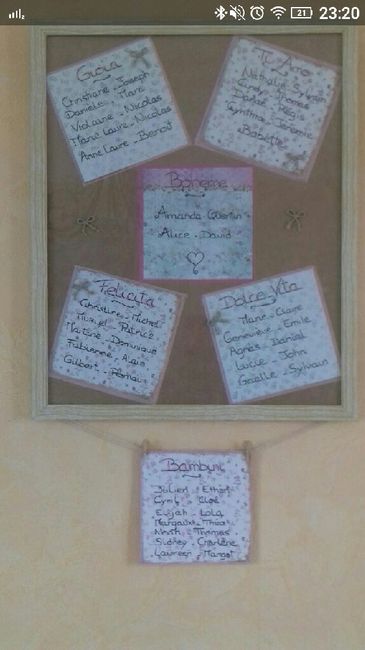 21 23:20
Gioia
Christiane - Joseph
Daniela - Marc
Violaine - Nicolas
Marie Laure - Nicolas
Anne Laure - Benoit
Ti Amo
Nathalie Sylvain
Thomas
Régis
Cynthia Jérémie
Babette
Bohème
Amanda - Quentin
Alice - David
Felicita
Christine - Michel
Muriel - Patrice
Martine - Dominique
Fabienne - Alain
Gilbert -
Dolce Vita
Marie - Claire
Geneviève - Emile
Agnès - Daniel
Lucie - John
Gaelle - Sylvain
Bambini
Julien - Ethan
Cyril - Cloé
Elijah - Lola
Margaux - Théa
Noah - Thomas
Sidney - Charlène
Laureen - Margot